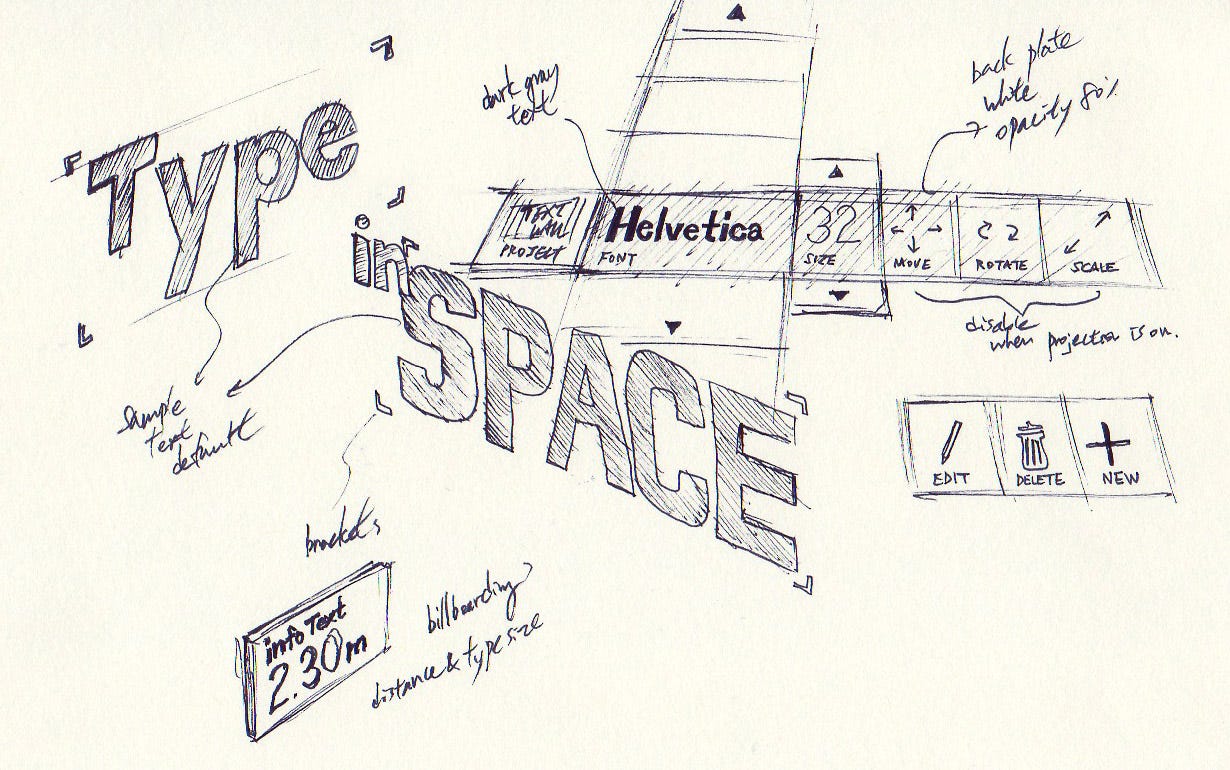 Type
in
SPACE
dark gray
text
back plate
white
opacity 80%
TEXT
WALL
PROJECT
Helvetica
FONT
32
SIZE
MOVE
ROTATE
SCALE
disable
when projection is on.
sample
text
default
EDIT
DELETE
NEW
brackets
info Text
2.30m
billboarding
distance & type size